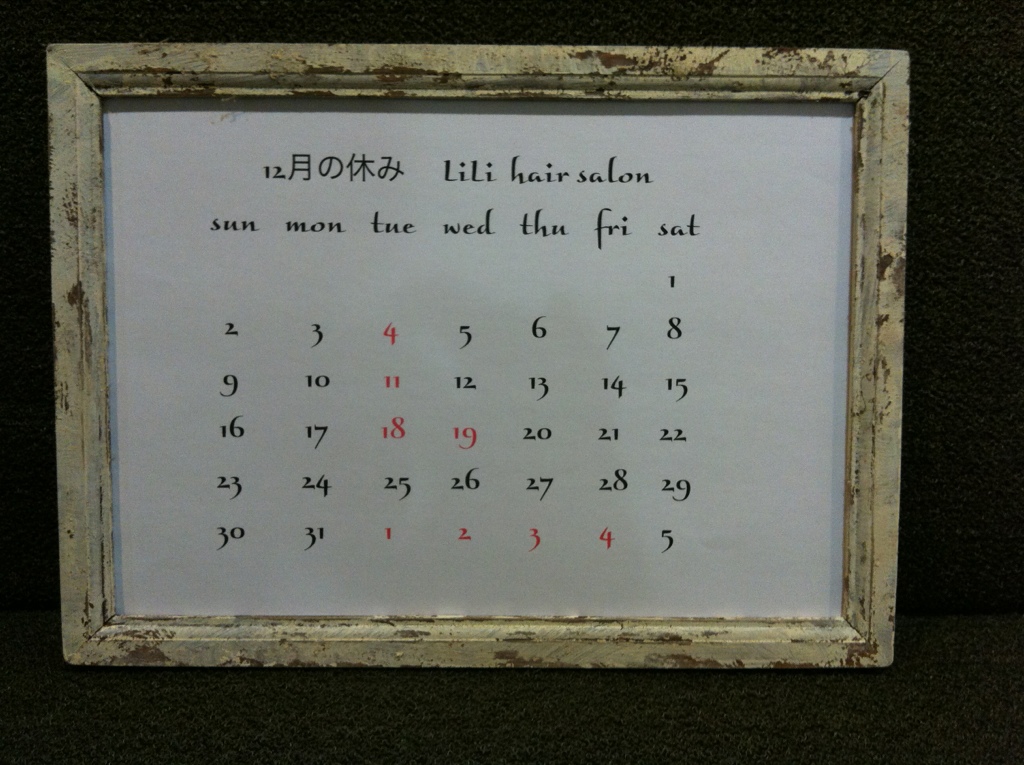 12月の休み LiLi hair salon
sun mon tue wed thu fri sat
1
2 3 4 5 6 7 8
9 10 11 12 13 14 15
16 17 18 19 20 21 22
23 24 25 26 27 28 29
30 31 1 2 3 4 5